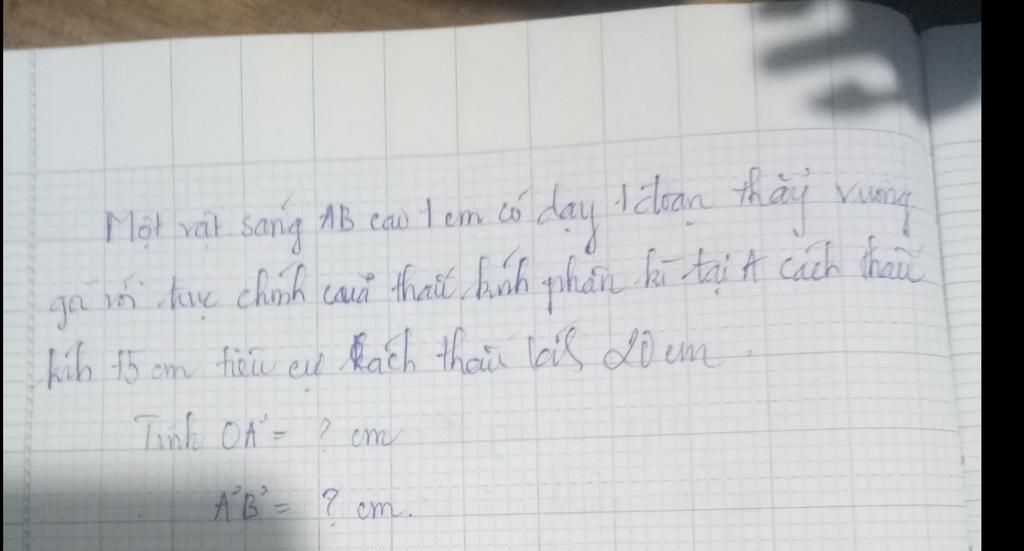 Một vật sáng AB cao 1 cm có dạy 1 đoạn thẳy vuông
gó với trục chính cauả thaií kính phân kì tại A cách thaií
kíh 15 cm tiêu cự kách thaií 20 cm.
Tính OA' = ? cm
A'B' = ? cm.